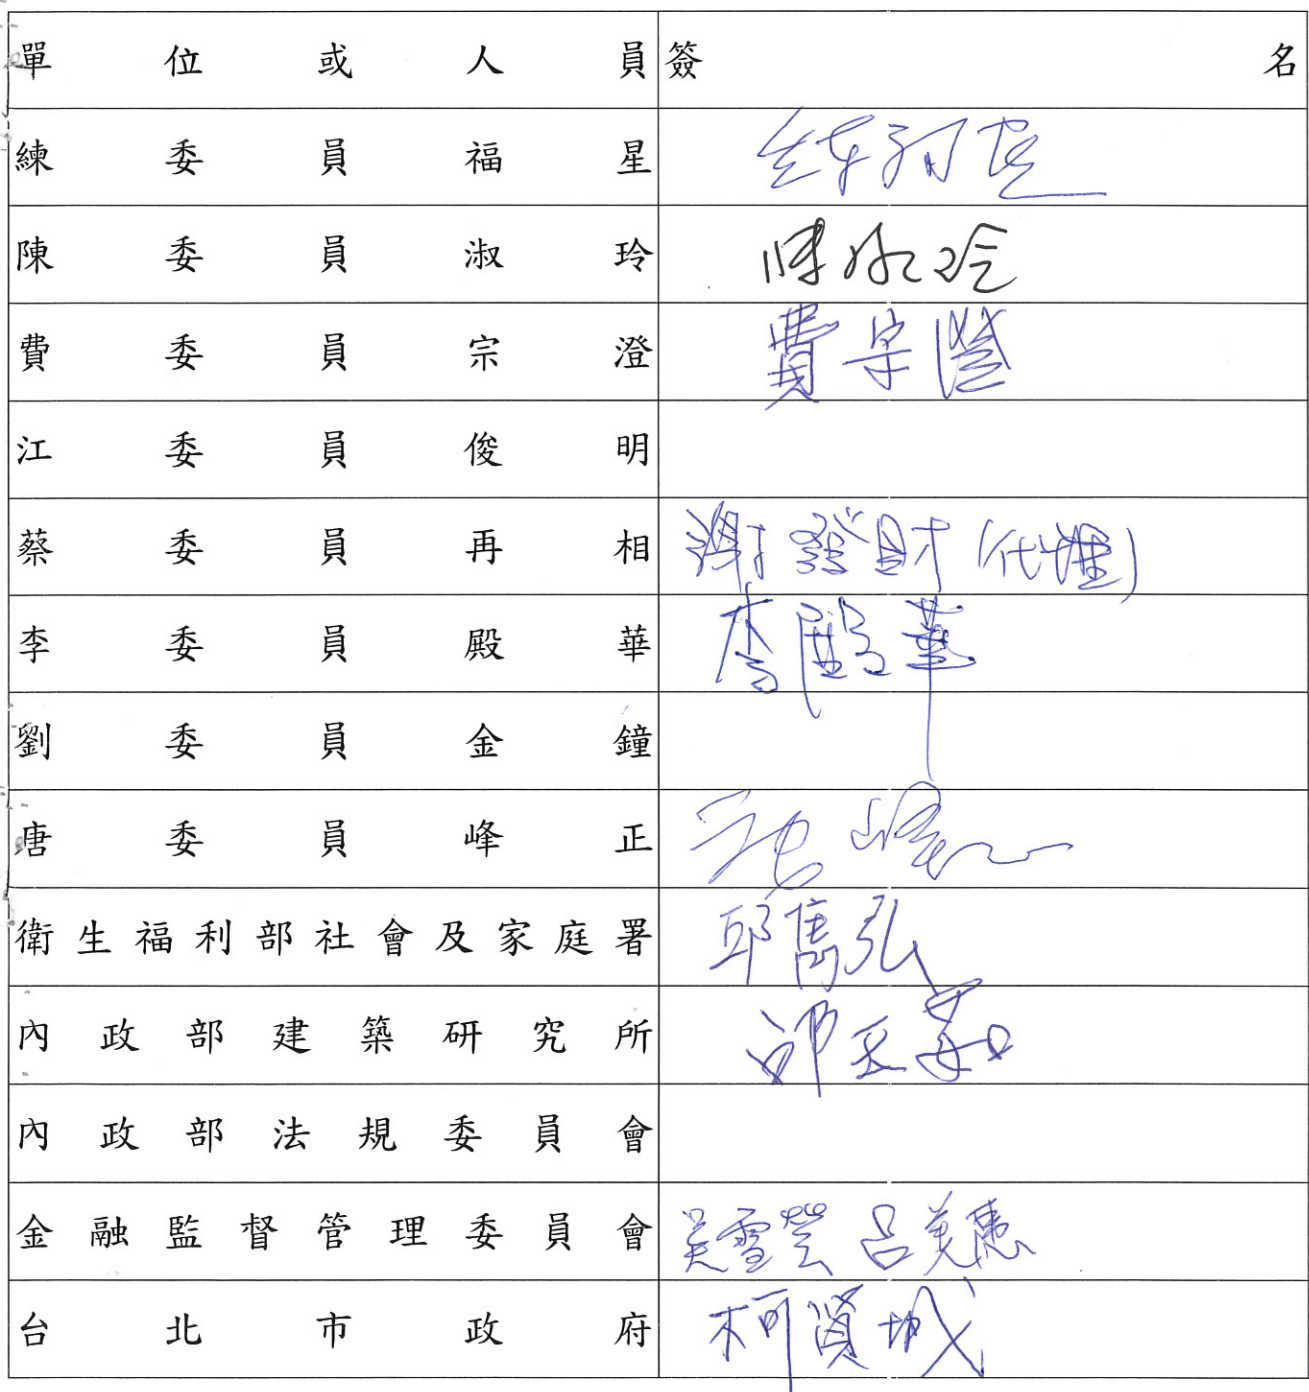 單位或人員 簽名
練委員福星 練福星
陳委員淑玲 陳淑玲
費委員宗澄 費宗澄
江委員俊明
蔡委員再相 謝發財(代理)
李委員殿華 李殿華
劉委員金鐘
唐委員峰正 唐峰正
衛生福利部社會及家庭署 邱雋弘
內政部建築研究所
內政部法規委員會
金融監督管理委員會 吳雪瑩 呂美惠
台北市政府 柯賢城